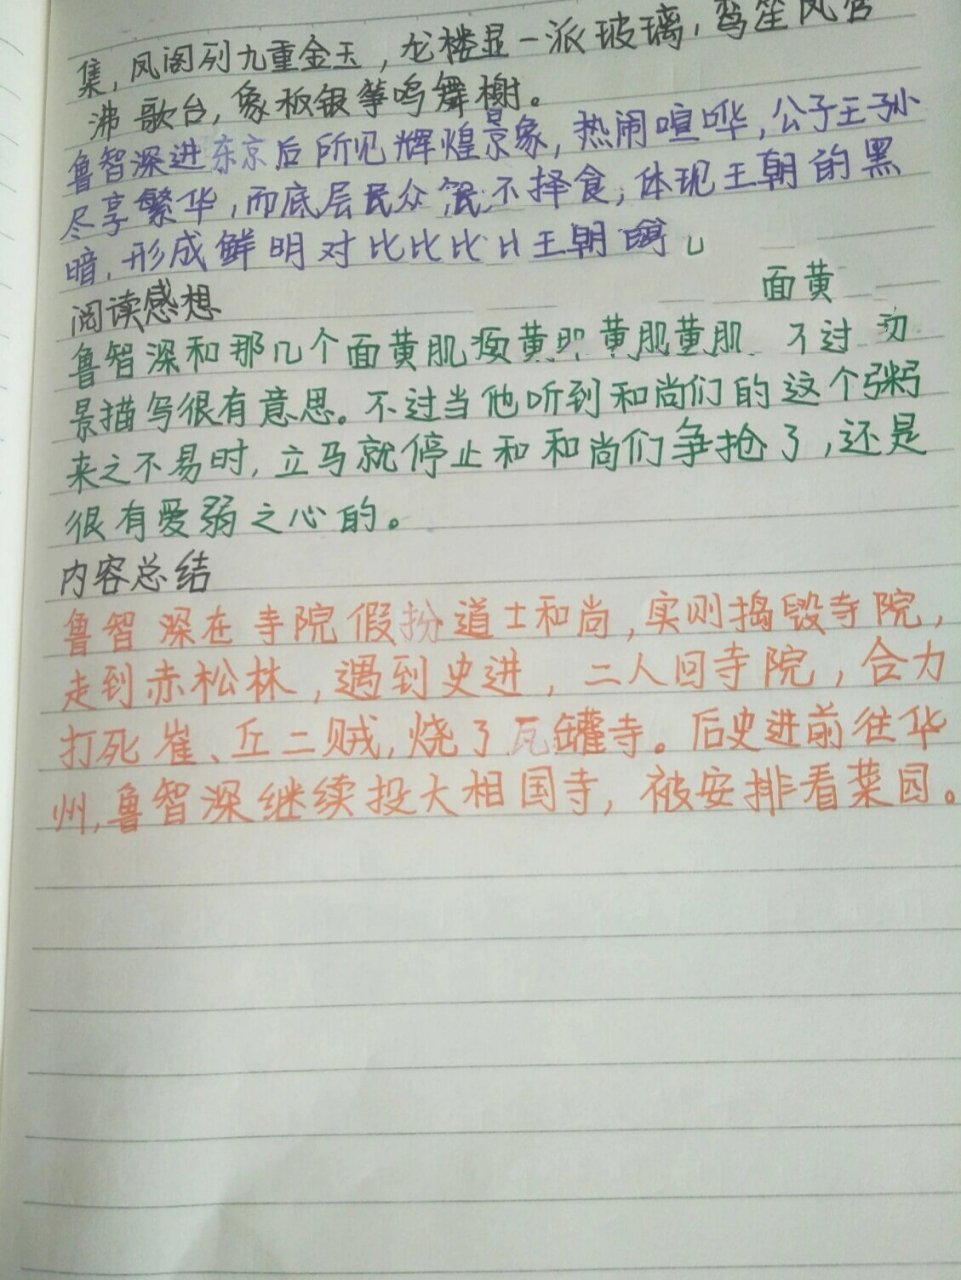 集，凤阁列九重金玉，龙楼显一派玻璃，鸾笙凤管
沸歌台，象板银筝鸣舞榭。
鲁智深进东京后所见辉煌景象，热闹喧哗，公子王孙
尽享繁华，而底层民众 不择食，体现王朝的黑
暗，形成鲜明对比比比 王朝
阅读感想
面黄
鲁智深和那几个面黄肌 黄 黄肌黄肌 不过
景描写很有意思。不过当他听到和尚们的这个粥
来之不易时，立马就停止和和尚们争抢了，还是
很有爱弱之心的。
内容总结
鲁智深在寺院假扮道士和尚，实则捣毁寺院，
走到赤松林，遇到史进，二人回寺院，合力
打死崔、丘二贼，烧了瓦罐寺。后史进前往华
州，鲁智深继续投大相国寺，被安排看菜园。